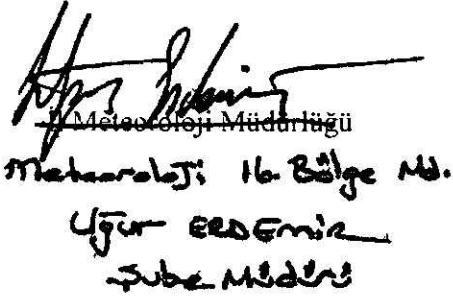 İl Meteoroloji Müdürlüğü
Meteoroloji 16. Bölge Md.
Uğur ERDEMİR
Şube Müdürü